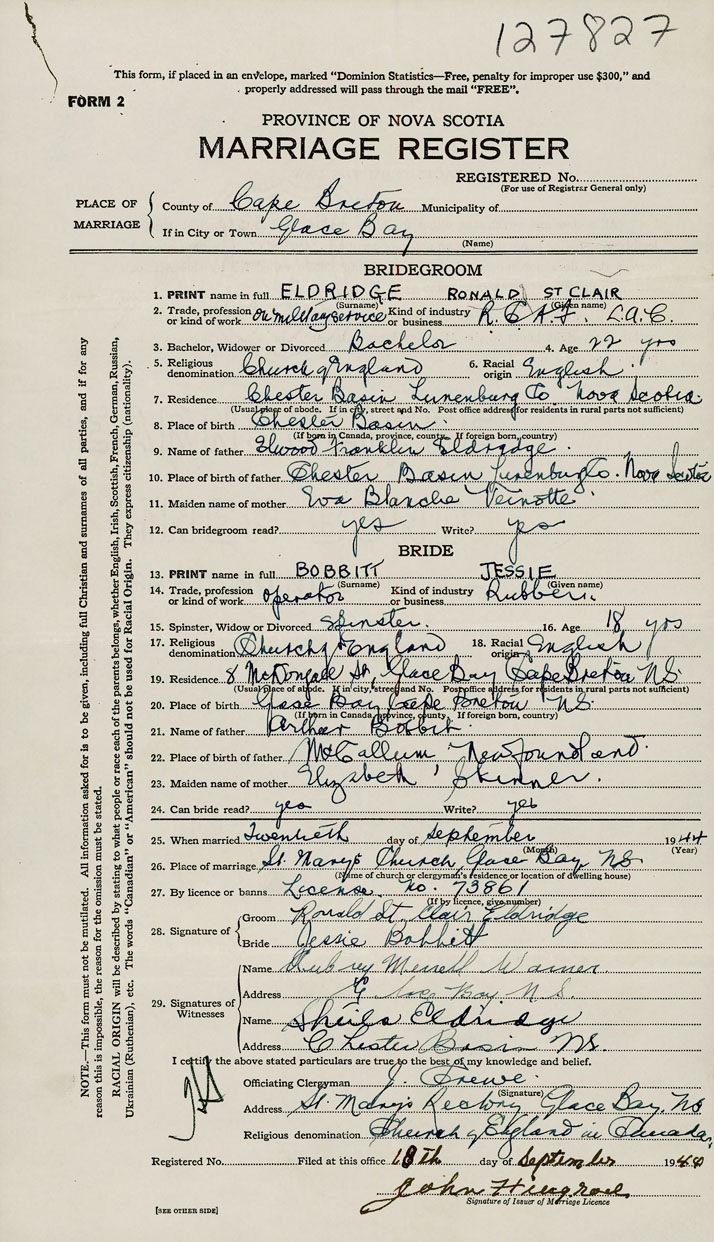 127827
This form, if placed in an envelope, marked "Dominion Statistics—Free, penalty for improper use $300," and
properly addressed will pass through the mail "FREE".
FORM 2
PROVINCE OF NOVA SCOTIA
MARRIAGE REGISTER
REGISTERED No.
(For use of Registrar General only)
PLACE OF MARRIAGE
County of Cape Breton Municipality of
If in City or Town Glace Bay
(Name)
BRIDEGROOM
1. PRINT name in full ELDRIDGE RONALD ST CLAIR
(Surname) (Given name)
2. Trade, profession or kind of work on military service Kind of industry or business R.C.A.F. L.A.C.
3. Bachelor, Widower or Divorced Bachelor 4. Age 22 yrs
5. Religious denomination Church of England 6. Racial origin English
7. Residence Chester Basin Lunenburg Co Nova Scotia
(Usual place of abode. If in city, street and No. Post office address for residents in rural parts not sufficient)
8. Place of birth Chester Basin
(If born in Canada, province, county. If foreign born, country)
9. Name of father Elwood Franklin Eldridge
10. Place of birth of father Chester Basin Lunenburg Co. Nova Scotia
11. Maiden name of mother Eva Blanche Veinotte
12. Can bridegroom read? yes Write? yes
BRIDE
13. PRINT name in full BOBBITT JESSIE
(Surname) (Given name)
14. Trade, profession or kind of work operator Kind of industry or business Rubber
15. Spinster, Widow or Divorced Spinster 16. Age 18 yrs
17. Religious denomination Church of England 18. Racial origin English
19. Residence 8 McDougall St, Glace Bay Cape Breton NS
(Usual place of abode. If in city, street and No. Post office address for residents in rural parts not sufficient)
20. Place of birth Glace Bay Cape Breton NS
(If born in Canada, province, county. If foreign born, country)
21. Name of father Arthur Bobbitt
22. Place of birth of father McCallum Newfoundland
23. Maiden name of mother Elizabeth Skinner
24. Can bride read? yes Write? yes
25. When married Twentieth day of September 1944
(Month) (Year)
26. Place of marriage St. Mary's Church, Glace Bay NS
(Name of church or clergyman's residence or location of dwelling house)
27. By licence or banns License no. 73861
(If by licence, give number)
28. Signature of
Groom Ronald St. Clair Eldridge
Bride Jessie Bobbitt
29. Signatures of Witnesses
Name Aubrey Merrell Warner
Address Glace Bay N.S.
Name Sheila Eldridge
Address Chester Basin NS.
I certify the above stated particulars are true to the best of my knowledge and belief.
Officiating Clergyman J. Frewe
(Signature)
Address St. Mary's Rectory Glace Bay, NS
Religious denomination Church of England in Canada
Registered No. Filed at this office 18th day of September 1944
Signature of Issuer of Marriage Licence
[SEE OTHER SIDE]
NOTE.—This form must not be mutilated. All information asked for is to be given, including full Christian and surnames of all parties, and if for any
reason this is impossible, the reason for the omission must be stated.
RACIAL ORIGIN will be described by stating to what people or race each of the parents belongs, whether English, Irish, Scottish, French, German, Russian,
Ukrainian (Ruthenian), etc. The words "Canadian" or "American" should not be used for Racial Origin. They express citizenship (nationality).